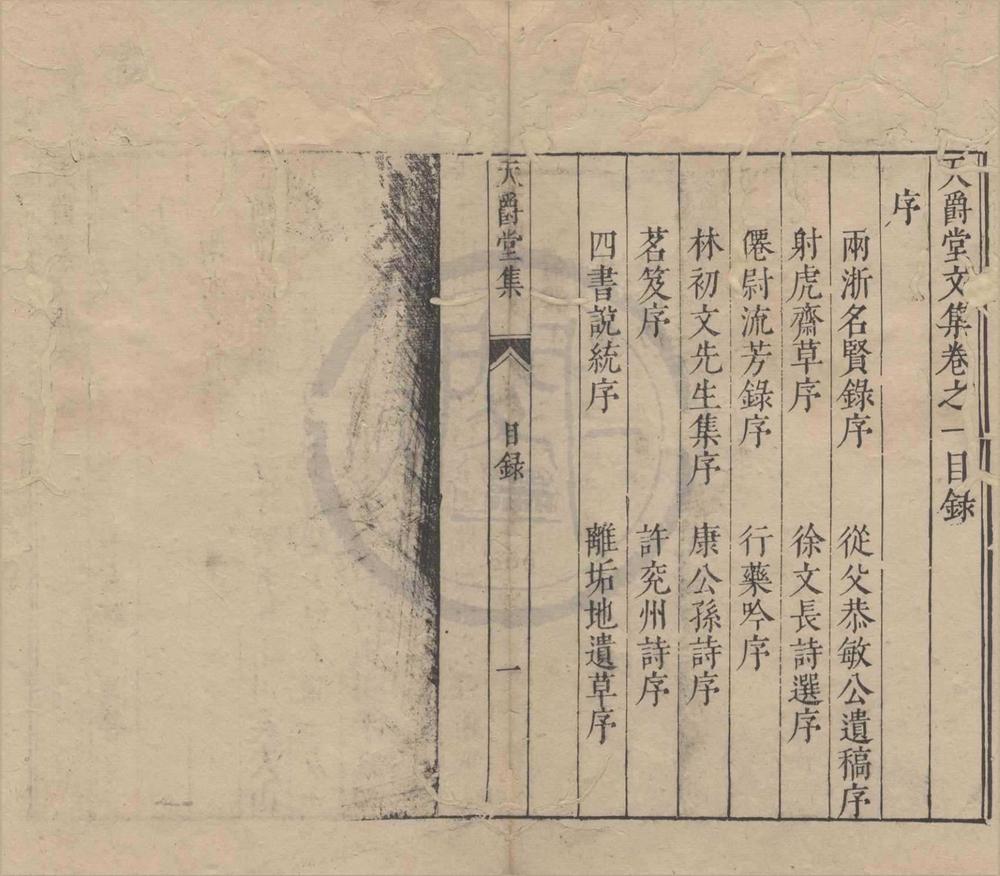 天爵堂文集卷之一目録
序
兩浙名賢錄序 從父恭敏公遺稿序
射虎齋草序 徐文長詩選序
僊尉流芳錄序 行藥吟序
林初文先生集序 康公孫詩序
茗笈序 許兗州詩序
四書說統序 離垢地遺草序
天爵堂集 目録 一